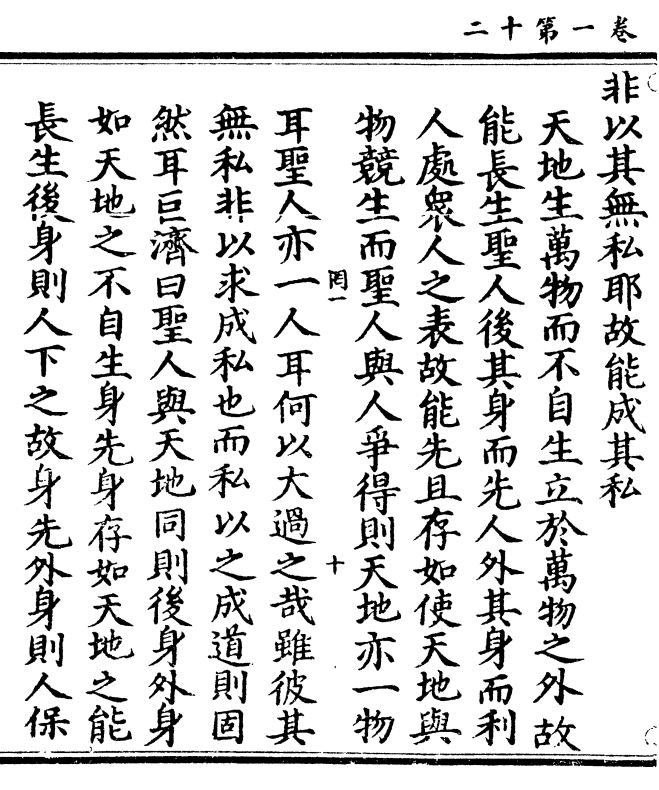 卷一第十二
非以其無私耶故能成其私
天地生萬物而不自生立於萬物之外故
能長生聖人後其身而先人外其身而利
人處衆人之表故能先且存如使天地與
物競生而聖人與人爭得則天地亦一物
罔一
十
耳聖人亦一人耳何以大過之哉雖彼其
無私非以求成私也而私以之成道則固
然耳巨濟曰聖人與天地同則後身外身
如天地之不自生身先身存如天地之能
長生後身則人下之故身先外身則人保